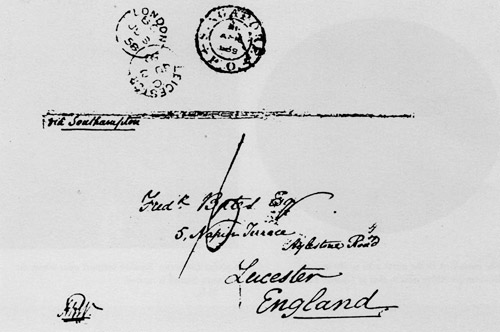 LONDON
58
LEICESTER
SINGAPORE
P.O.
viâ Southampton
Fredk. Bates Esq
5, Napier Terrace
Aylestone Road
Leicester
England